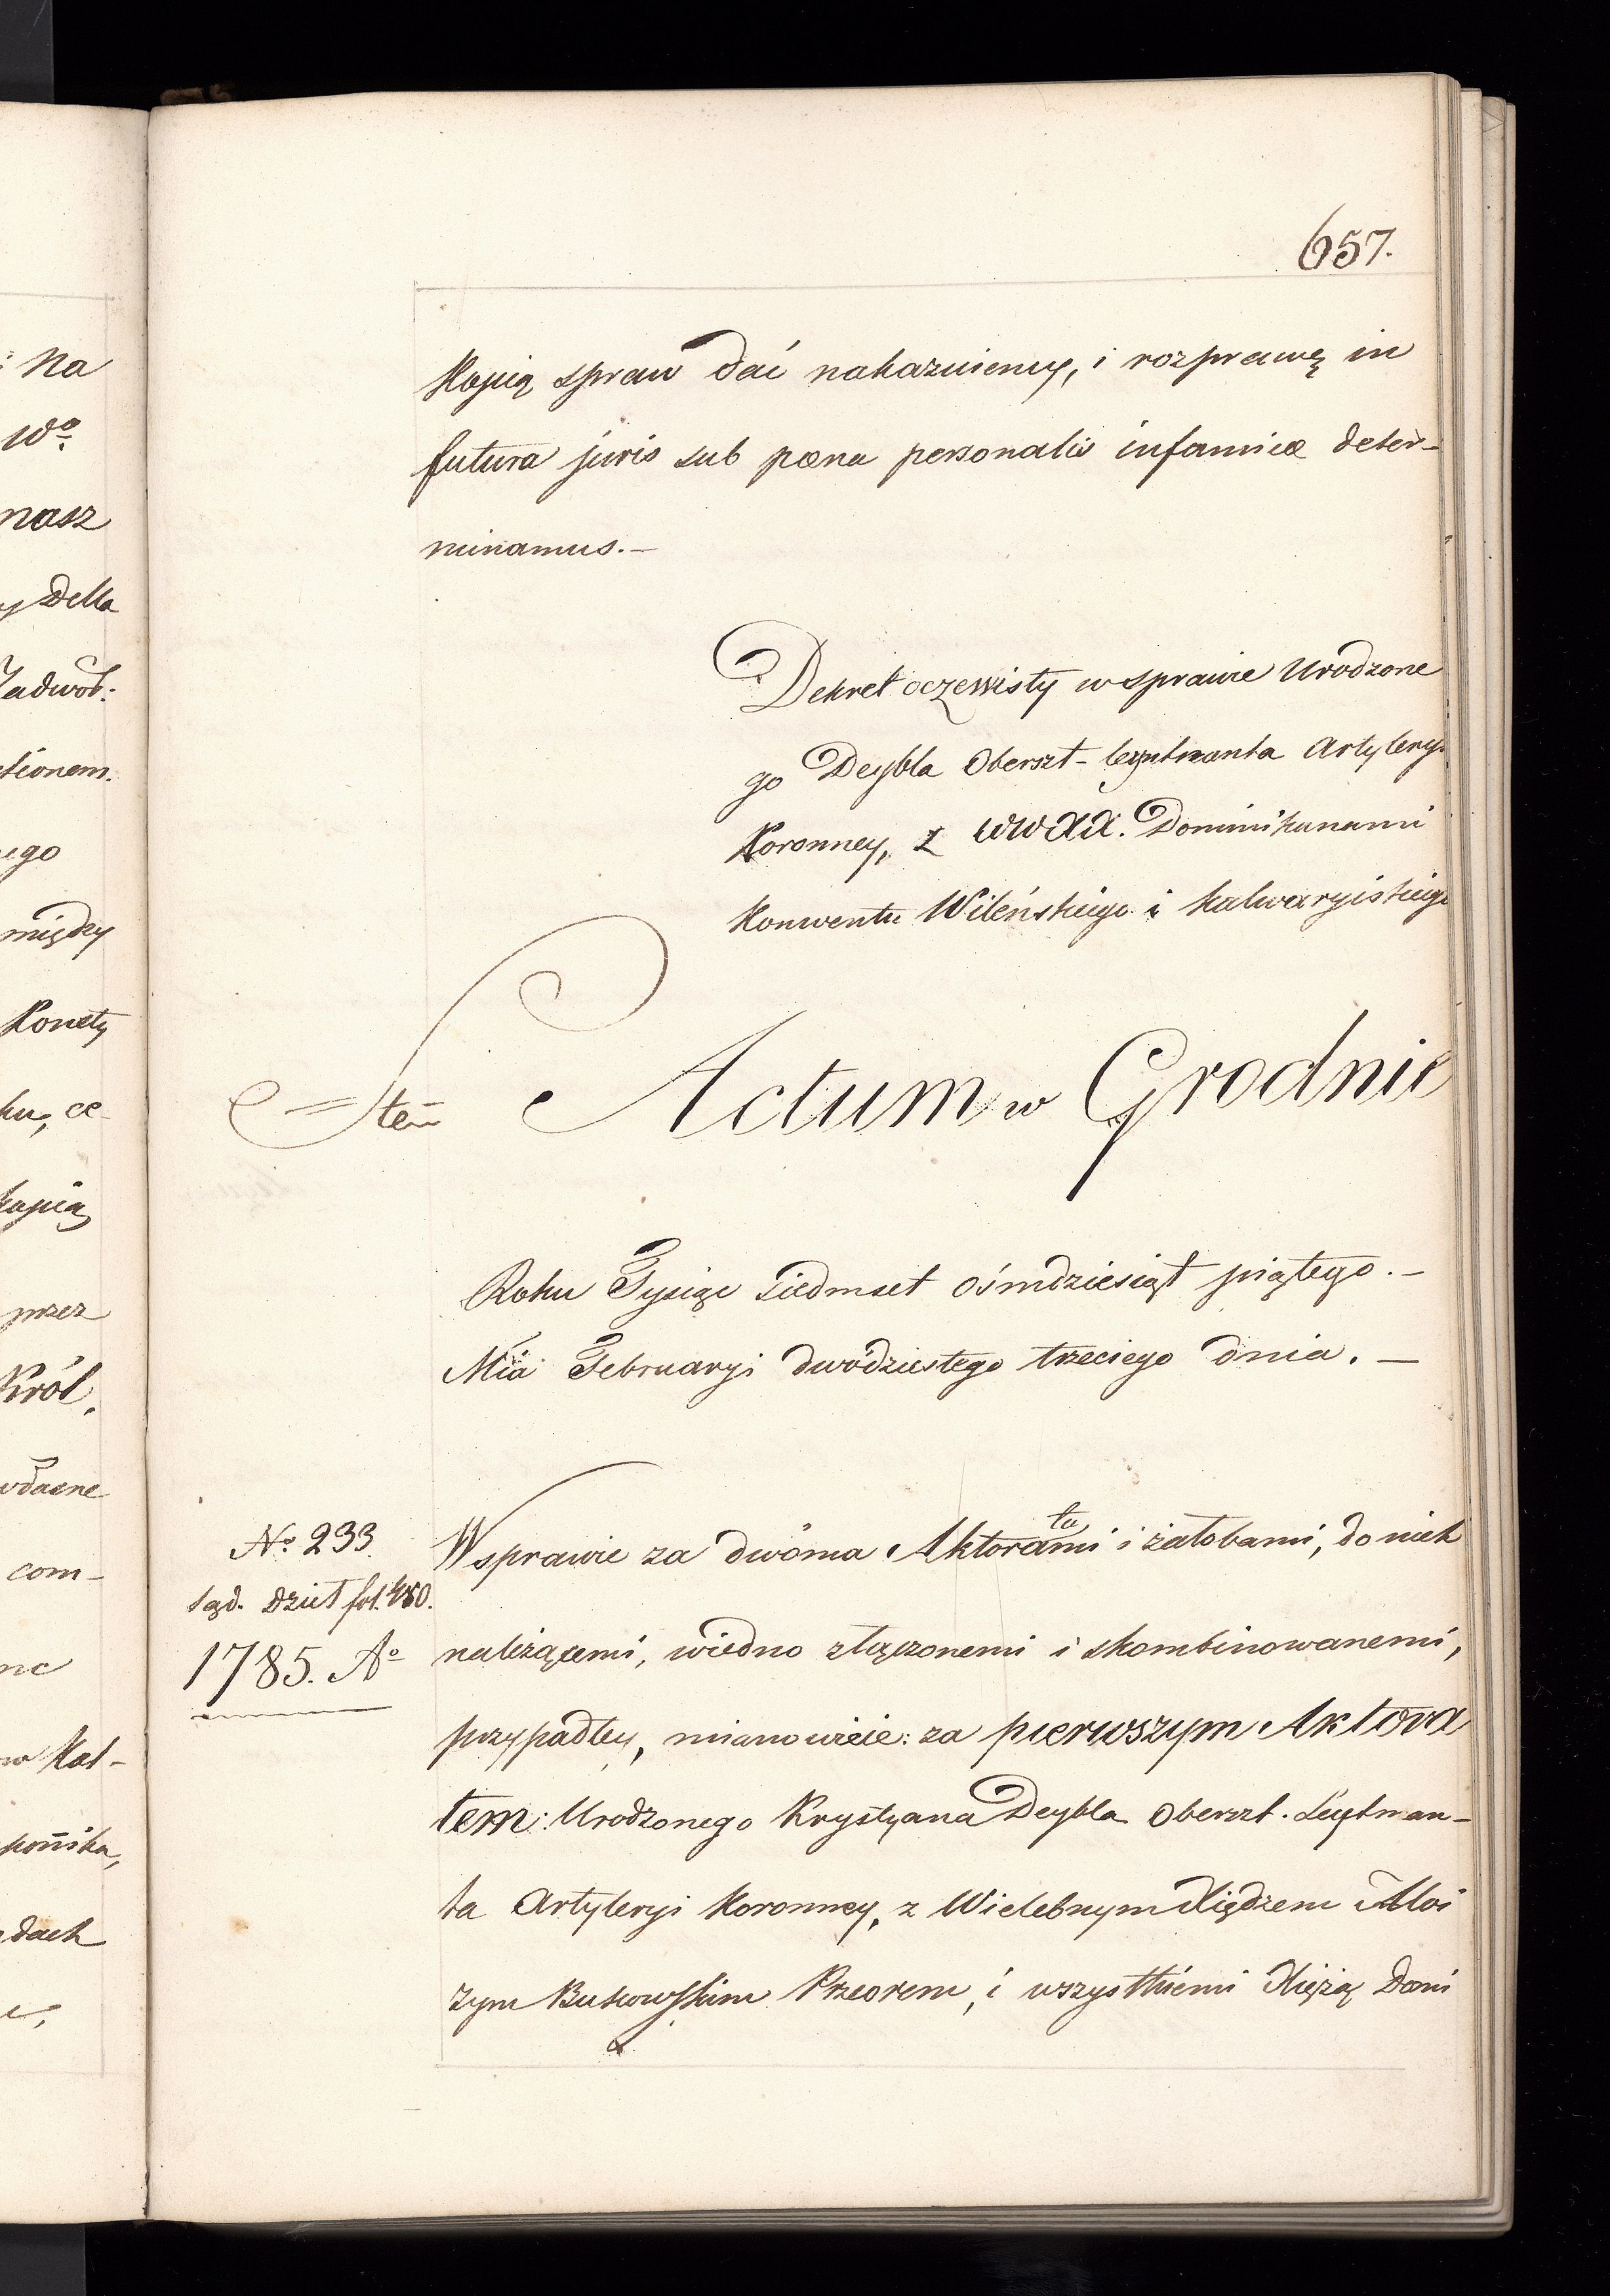 657.
Kopią spraw dać nakazuiemy, i rozprawę in
futura juris sub pœna personalis infamiæ deter-
minamus.—
Dekret oczewisty w sprawie Urodzone
go Deybla Oberszt-leytnanta Artylery
Koronney, z WWXX. Dominikanami
Konwentu Wileńskiego i kalwaryiskiego
Actum w Grodnie
Roku Tysiąc Siedmset Ośmdziesiąt piątego.—
Mia Februaryi dwódziestego trzeciego dnia.—
No 233.
Sąd. Dzieł fol.
1785. Ao
W sprawie za dwóma Aktoratami i żałobami, do nich
należącemi, wiedno złączonemi i skombinowanemi,
przypadłey, mianowicie: za pierwszym Aktora
tem: Urodzonego Krystyana Deybla Oberszt. Leytman-
ta Artyleryi Koronney, z Wielebnym Xiędzem Aloi
zym Bukowskim Przeorem, i wszystkiemi Xiężą Domi
Na
Wo
nasz
y Della
Zadwor:
ctionem.
ego
między
Konety
ku, ce-
kopią
przez
Król.
com-
ne
w Kal-
dach